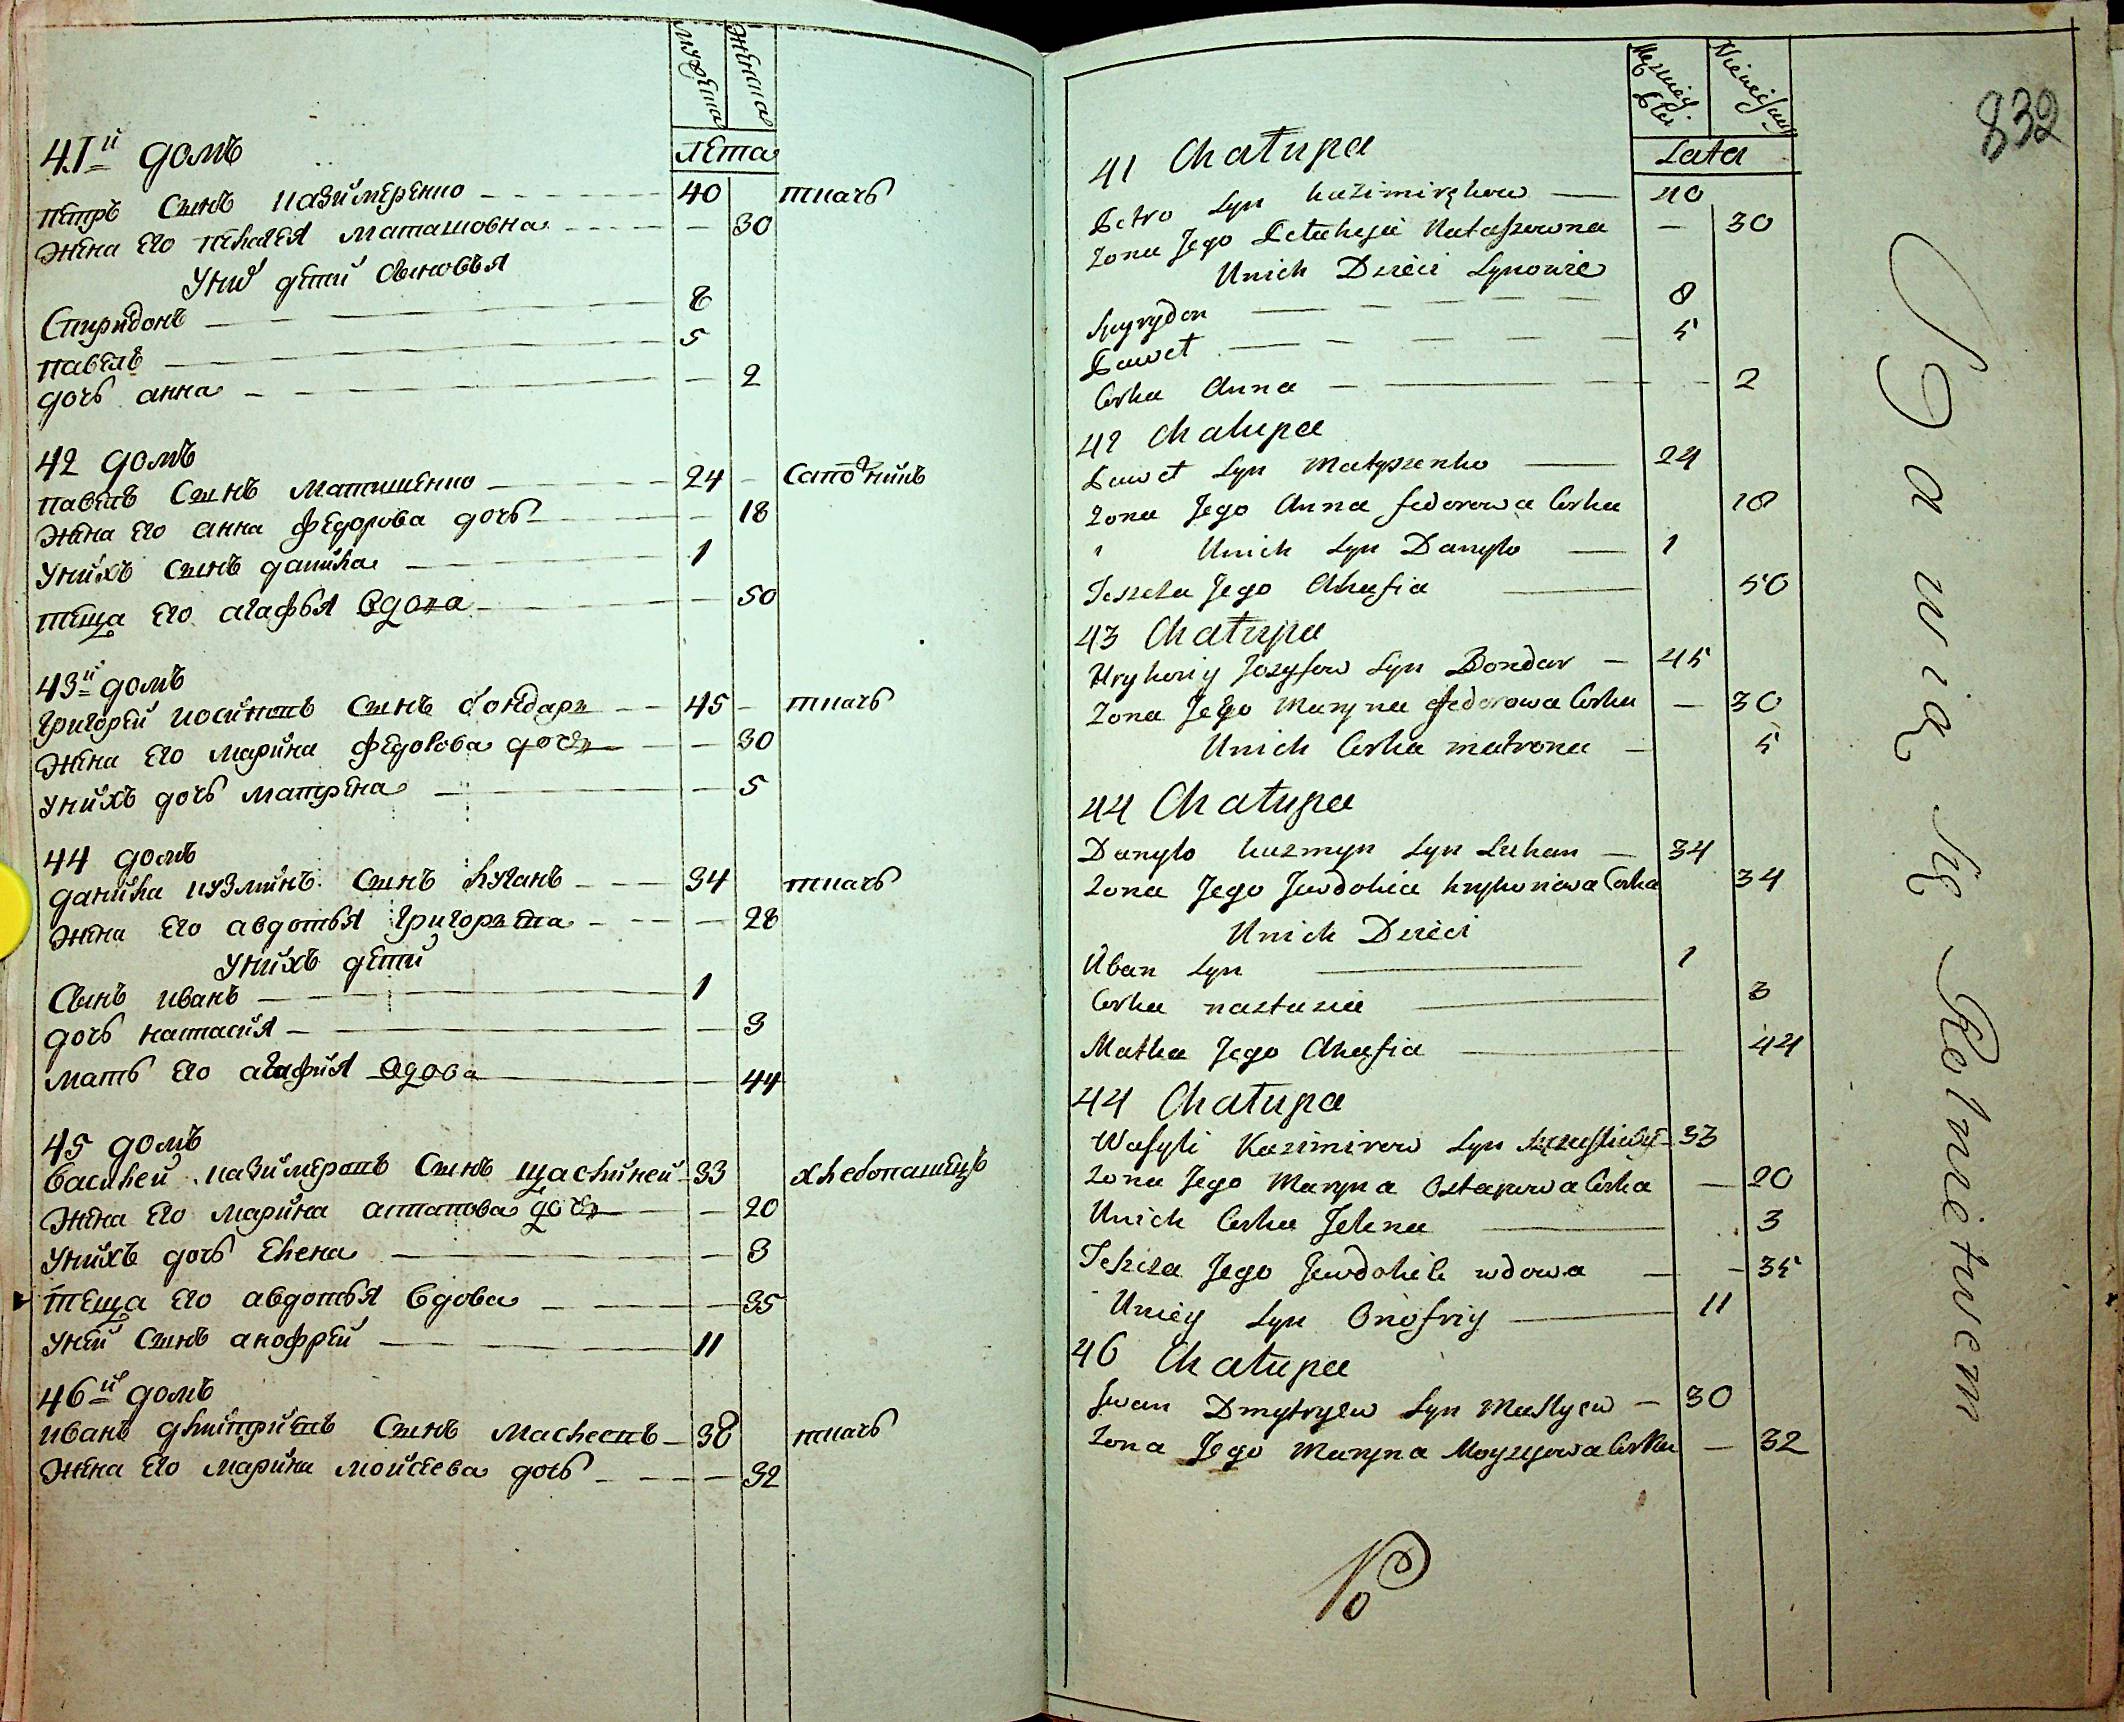 мужеска
женска
лета
41й домъ
петръ сынъ казимеренко 40 ткачь
жена его пелагея маташовна 30
у них дети сыновья
Спиридонъ 8
павелъ 5
дочь анна 2
42 домъ
павелъ сынъ матишенко 24 сапожникъ
жена его анна федорова дочь 18
у нихъ сынъ данила 1
теща его агафья вдова 50
43й домъ
григорей иосиповъ сынъ бондарь 45 ткачь
жена его марина федорова дочь 30
у нихъ дочь матрена 5
44 домъ
данила кузминъ сынъ луганъ 34 ткачь
жена его авдотья григорьева 28
у нихъ дети
сынъ иванъ 1
дочь настасия 3
мать его агафия вдова 44
45 домъ
василей казимеровъ сынъ щасливей 33 хлебопашецъ
жена его марина астапова дочь 20
у нихъ дочь елена 3
теща его авдотья вдова 35
у ней сынъ анофрей 11
46й домъ
иванъ дмитриевъ сынъ маслеевъ 38 ткачь
жена его марина моисеева дочь 32
832
Męzkiey Płci
Niewiesciey
Lata
41 Chałupa
Petro Syn Kazimirękow 40
Zona Jego Petuheja Mataszowna 30
Unich Dzieci Synowie
Spyrydon 8
Paweł 5
Corka Anna 2
42 Chalupa
Paweł Syn Matyszenko 24
Zona Jego Anna fedorowa Corka 18
Unich Syn Danyło 1
Teszcza Jego Ahafia 50
43 Chałupa
Hryhoriy Jozyfow Syn Bondar 45
Zona Jego Maryna fedorowa Corka 30
Unich Corka matrona 5
44 Chałupa
Danyło Kuzmyn Syn Luhan 34
Zona Jego Jewdokia hryhoriowa Corka 34
Unich Dzieci
Üban Syn 1
Corka nastazia 3
Matka Jego Ahafia 44
44 Chałupa
Wasyli Kazimirow Syn Szczasliwy 33
Zona Jego Maryna Ostapowa Corka 20
Unich Corka Jelena 3
Teszcza Jego Jewdokia wdowa 35
Uniey Syn Onofriy 11
46 Chałupa
Jwan Dmytryew Syn Maslyew 30
Zona Jego Maryna Moyzyjowa Corka 32